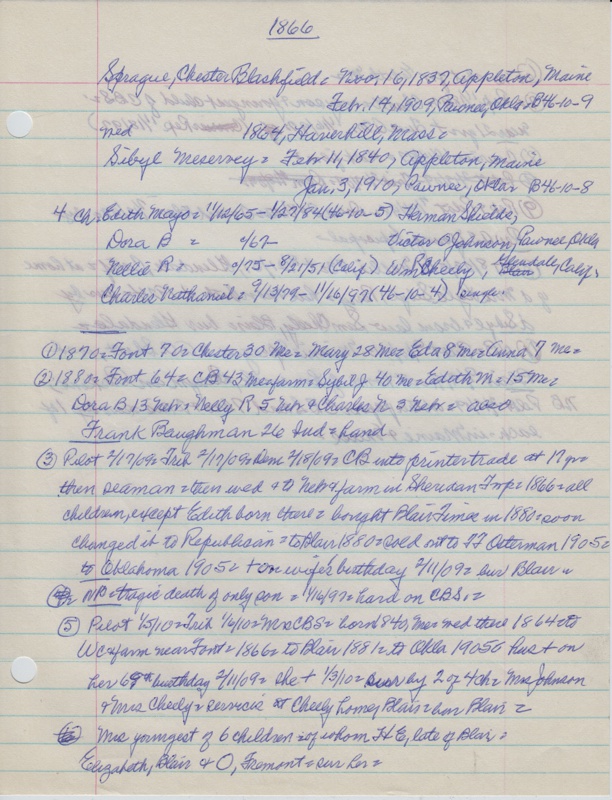 1866
Sprague, Chester Blashfield = Nov. 16, 1837, Appleton, Maine
Feb. 14, 1909, Pawnee, Okla. B46-10-9
wed 1864, Haverhill, Mass =
Sibyl Meservey = Feb 11, 1840, Appleton, Maine
Jan, 3, 1910, Pawnee, Okla B46-10-8
4 ch. Edith Mayo = 11/10/65 - 1/27/84 (46-10-5) Herman Shields,
Dora B = 0/67 - Victor O Johnson, Pawnee, Okla
Nellie R = 0/75 - 8/21/51 (Calif) Wm R Cheely, Glendale, Calif.
Charles Nathaniel = 9/13/79 - 11/16/97 (46-10-4) single
① 1870 = Font 70 = Chester 30 Me = Mary 28 Me = Eda 8 Me = Anna 7 Me =
② 1880 = Font 64 = CB 43 Me farm = Sybel J 40 Me = Edith M = 15 Me =
Dora B 13 Neb = Nelly R 5 Neb + Charles N 3 Neb =
Frank Baughman 26 Ind = hand
③ Pilot 2/17/09 = Trib 2/17/09 = Dem 2/18/09 = CB into printer trade at 17 yr =
then seaman = then wed + to Neb + farm in Sheridan Twp = 1866 = all
children, except Edith born there = bought Blair Times in 1880 = soon
changed it to Republican = to Blair 1880 = sold out to TT Osterman 1905 =
to Oklahoma 1905 = + on wife's birthday 2/11/09 = bur Blair =
④ NB = tragic death of only son = 11/16/97 = hard on CBS =
⑤ Pilot 1/5/10 = Trib 1/6/10 = Mrs CBS = born 1840, Me = wed there 1864 = to
WC + farm near Font = 1866 = to Blair 1881 = to Okla 1905 = hus + on
her 69th birthday 2/11/09 = she + 1/3/10 = sur by 2 of 4 ch = Mrs Johnson
+ Mrs Cheely = services at Cheely home, Blair = bur Blair =
⑥ Mrs youngest of 6 children = of whom H E, late of Blair =
Elizabeth, Blair & O, Fremont = sur her =